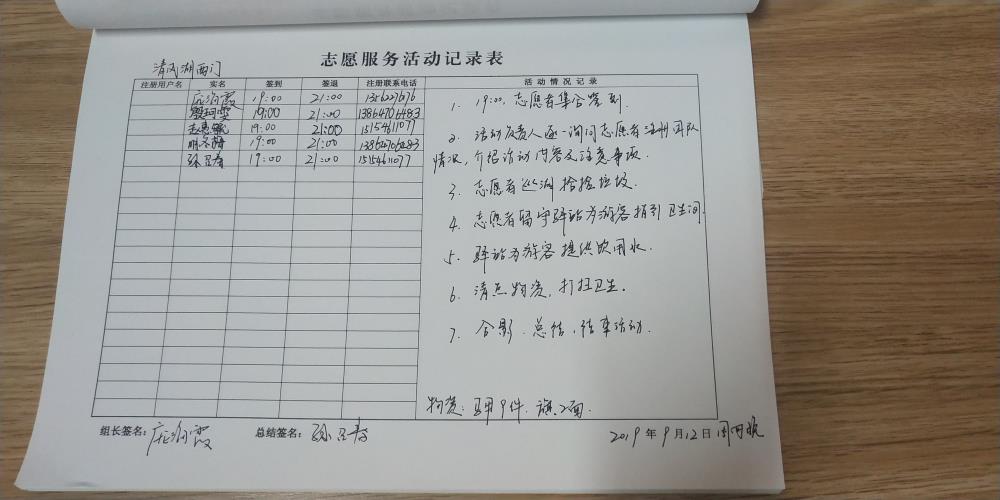 志愿服务活动记录表
清风湖西门
注册用户名 实名 签到 签退 注册联系电话 活动情况记录
霞 19:00 21:00
19:00 21:00 13864706483
19:00 21:00 15154611077
19:00 21:00 13864706483
孙卫春 19:00 21:00 15154611077
1. 19:00,志愿者集合签到.
2. 活动负责人逐一询问志愿者注册团队
情况,介绍活动内容及注意事项.
3. 志愿者巡湖捡捡垃圾.
4. 志愿者留守驿站为游客指引卫生间.
5. 驿站为游客提供饮用水.
6. 清点物资,打扫卫生.
7. 合影、总结、结束活动.
物资: 9件. 旗2面.
组长签名: 霞 总结签名: 孙卫春 2019年9月12日 周四晚